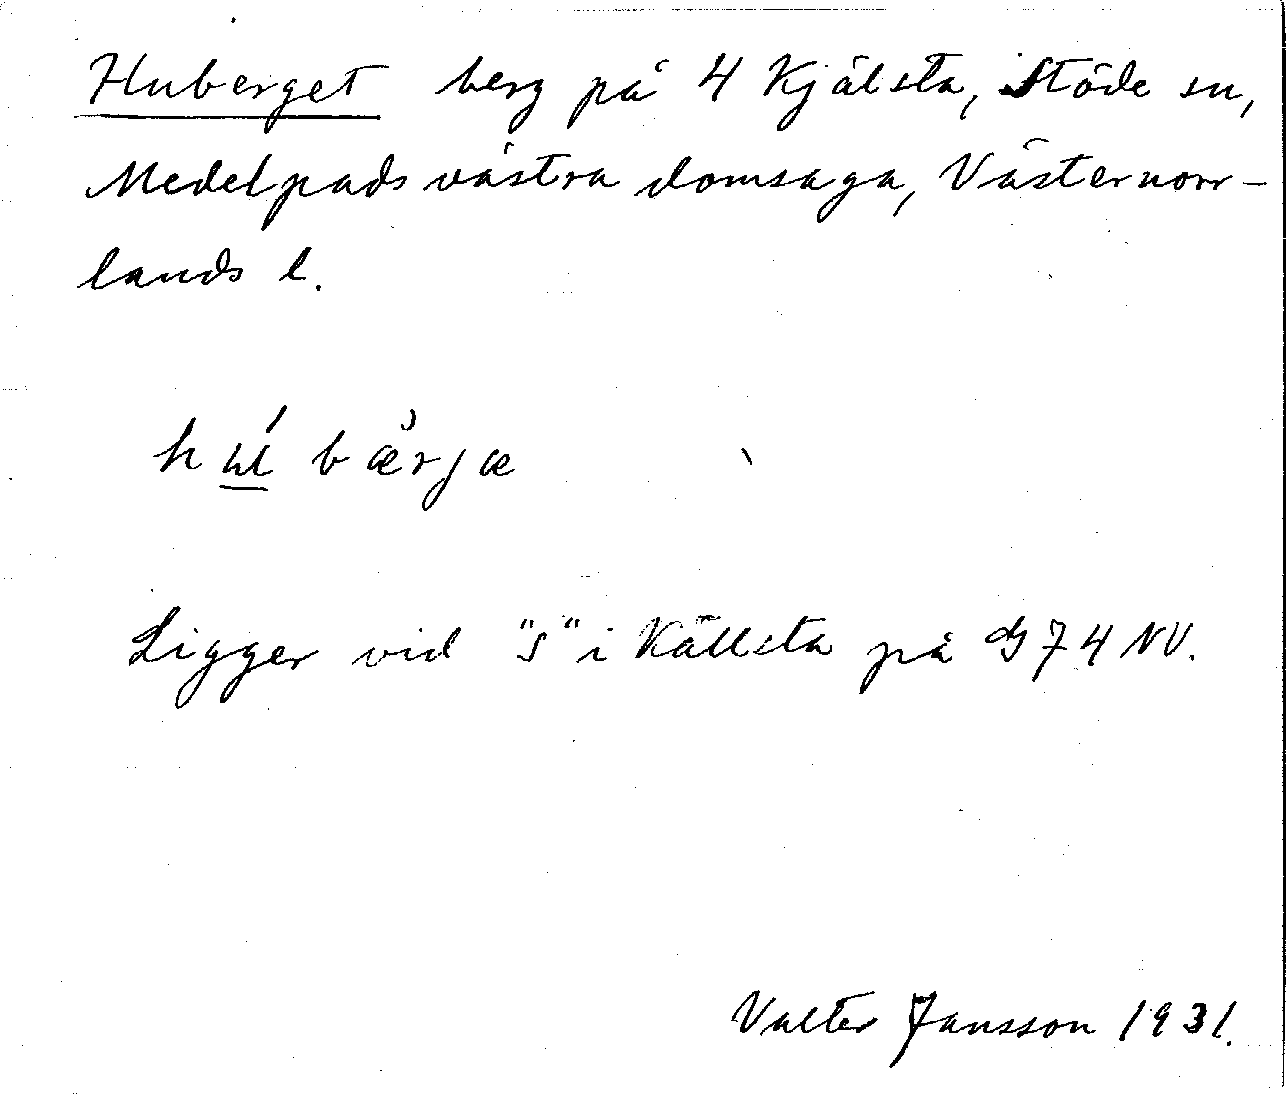 Huberget berg på 4 Kjälsta, Stöde sn,
Medelpads västra domsaga, Västernorr-
lands l.
hú bærjæ
Ligger vid "s" i Källsta på G 74 NV.
Valter Jansson 1931.